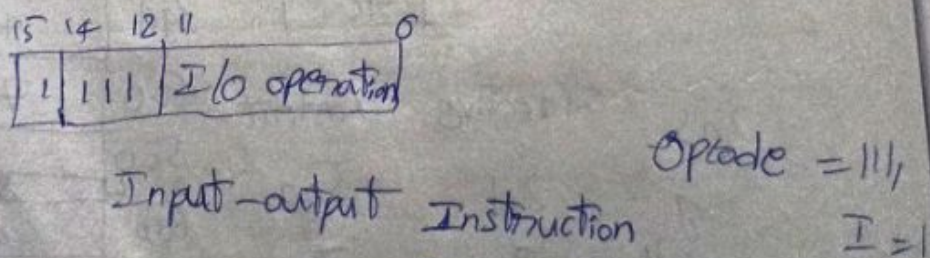 15 14 12 11 0
1 111 I/O operation
Opcode = 111,
Input-output Instruction
I = 1